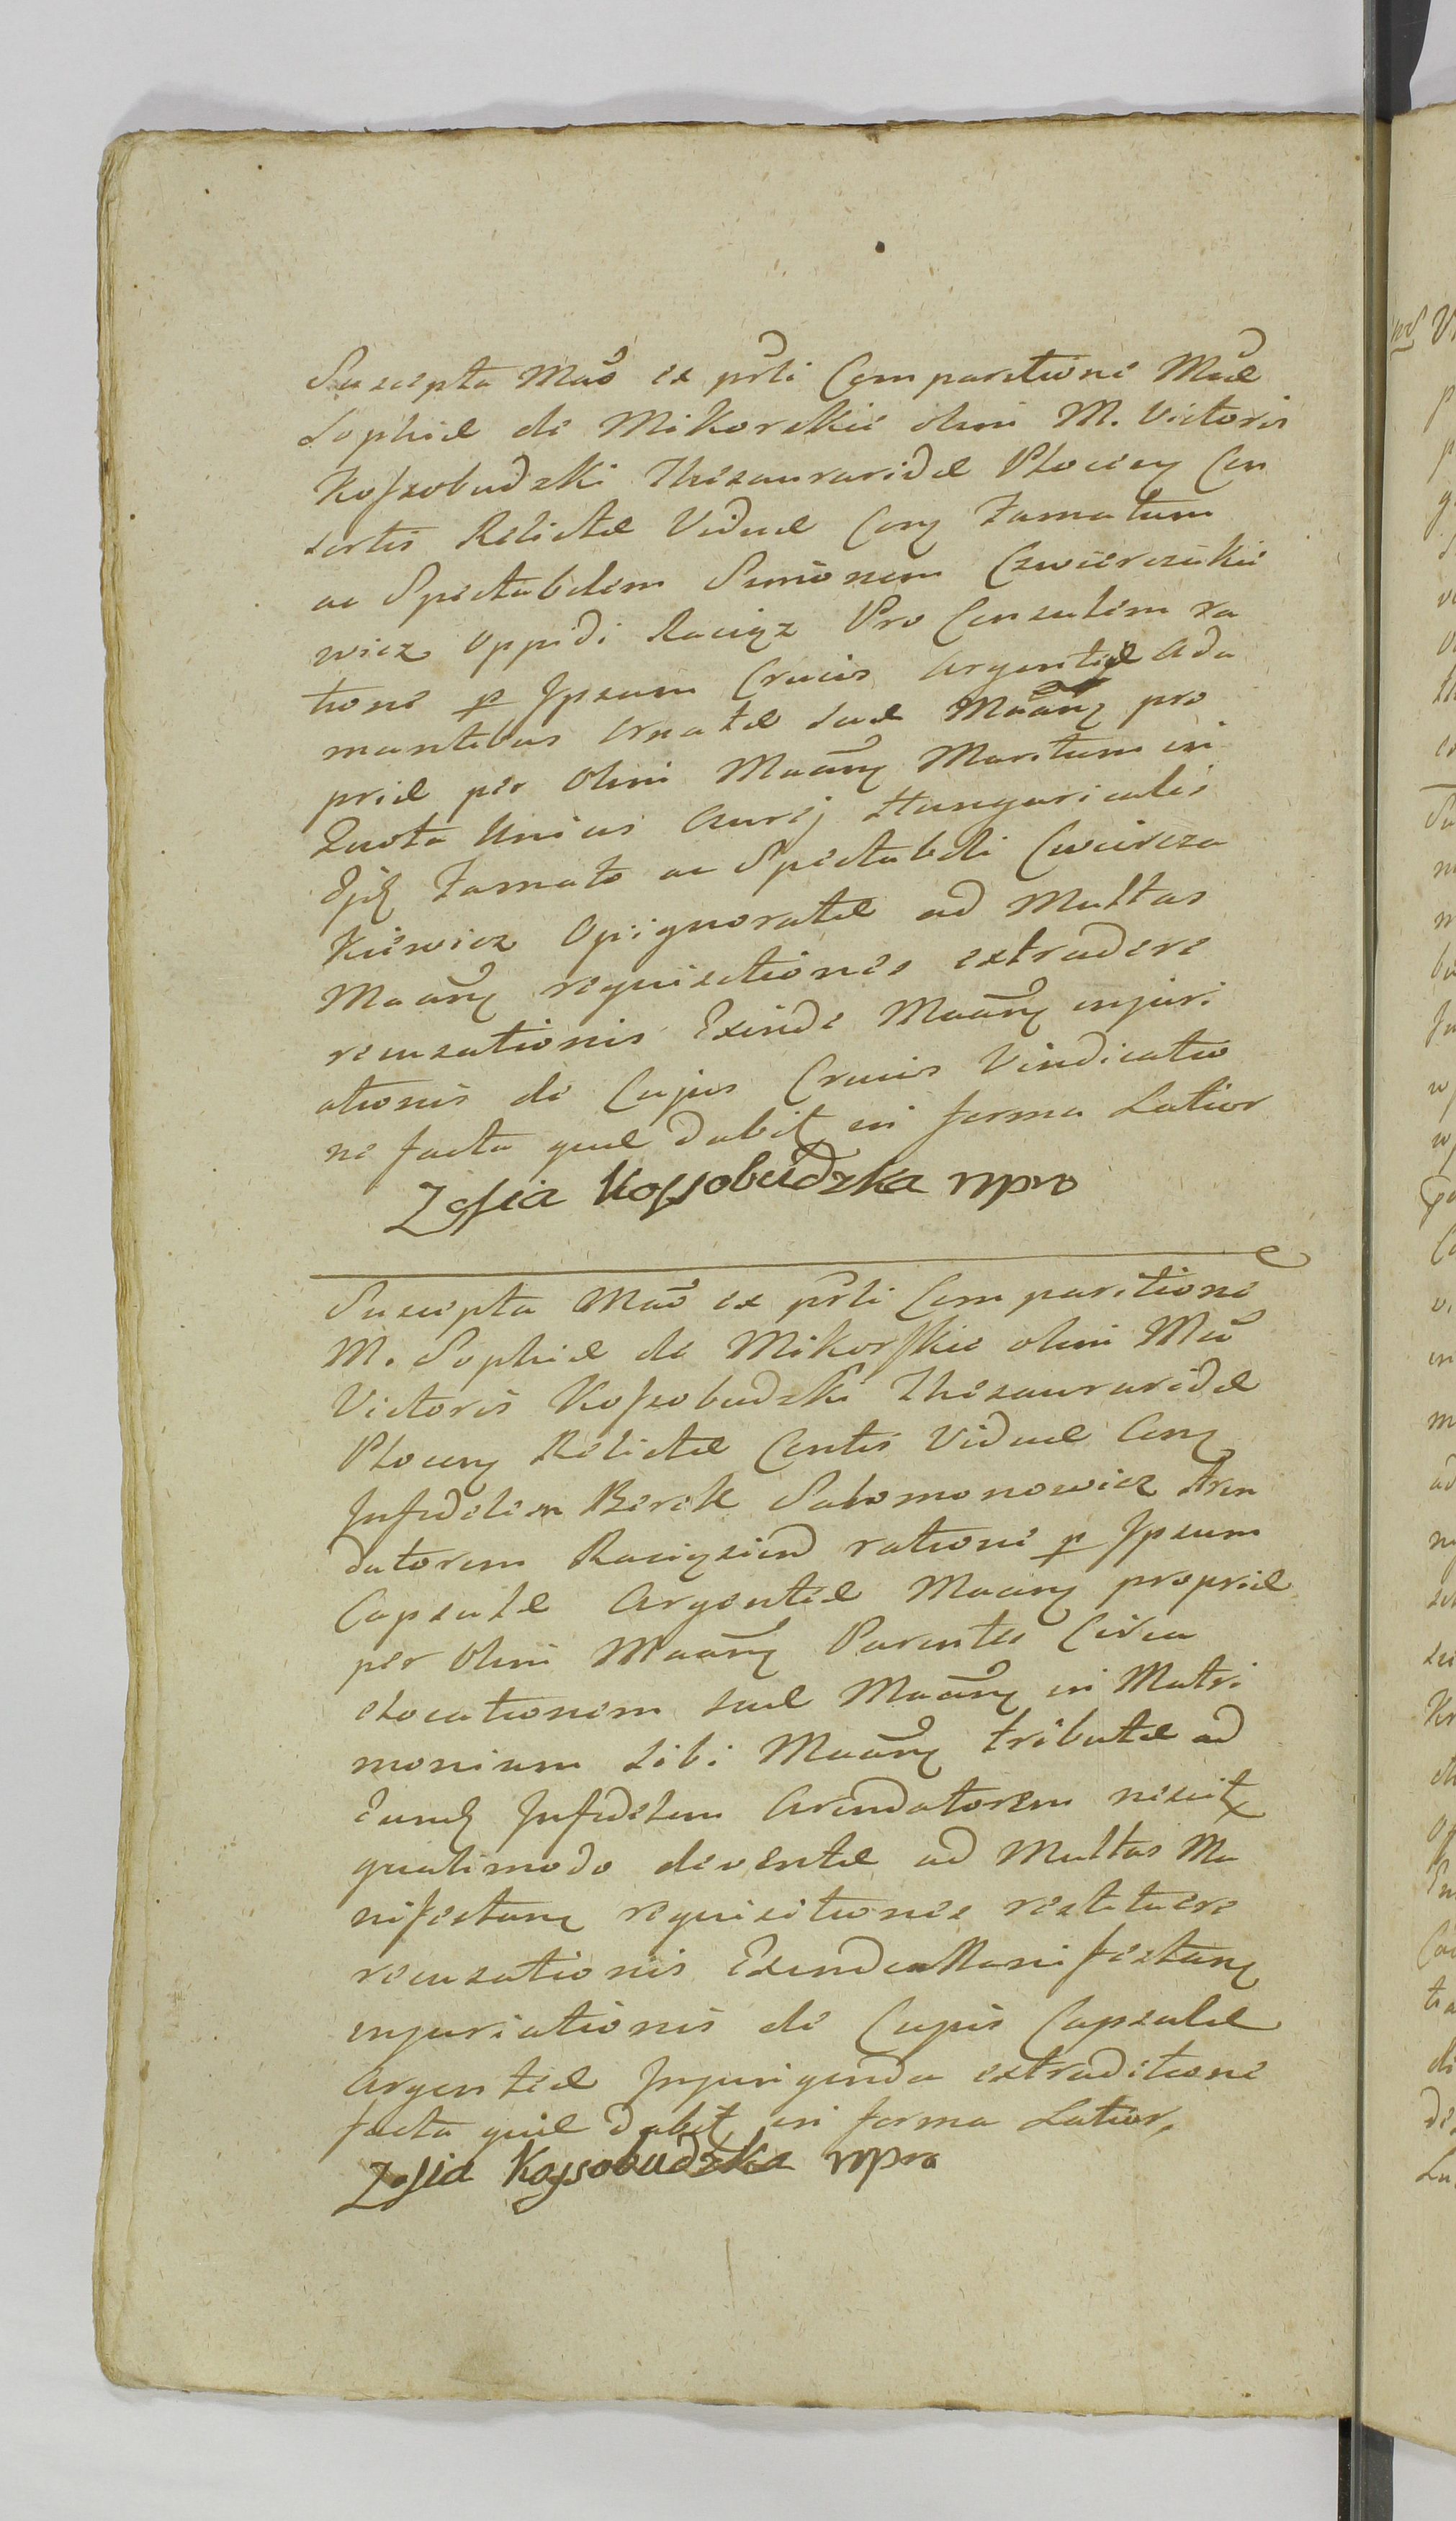 Suscepta Mãõ ex pr̃li Comparitione Mãe
Sophiæ de Mikorskie olim M. Victoris
Kosszobudzki Thesauraridæ Plocen Con
sortis Relictæ Viduæ Con Famatum
ac Spectabilem Simonem Czwierczakie
wicz Oppidi Raciąz Pro Consulem ra
tione p Ipsum Crucis Argenteæ Ada
mantibus Ornatæ suæ Maãn pro
priæ per Olim Maãn Maritum in
Quota Unius Aurej Hungaricalis
Ejd Famato ac Spectabili Cwiercza
kiewicz Opignoratæ ad Multas
Maãn requisitiones extradere
recusationis Exinde Maãn injuri
ationis de Cujus Crucis Vindicatio
ne facta quæ dabit in forma Latior
Zofia Kossobudzka mpro
Suscepta Mãõ ex pr̃li Comparitione
M. Sophiæ de Mikorskie olim Mõ
Victoris Kosszobudzki Thesauraridæ
Plocen Relictæ Contis Viduæ Con
Infidelem Berek Salomonowicz Aren
datorem Raciąscień ratione p Ipsum
Capsulæ Argenteæ Maan propriæ
per Olim Maãn Parentes Circa
elocationem suæ Maãn in Matri
monium sibi Maãn tributæ ad
Eund Infidelem Arendatorem nescit
qualimodo deventæ ad Multas Ma
nifestan requisitiones restituere
recusationis Exinde Manifestan
injuriationis de Cujus Capsulæ
Argenteæ extraditione
facta quæ dabit in forma Latior,
Zofia Kossobudzka mpro